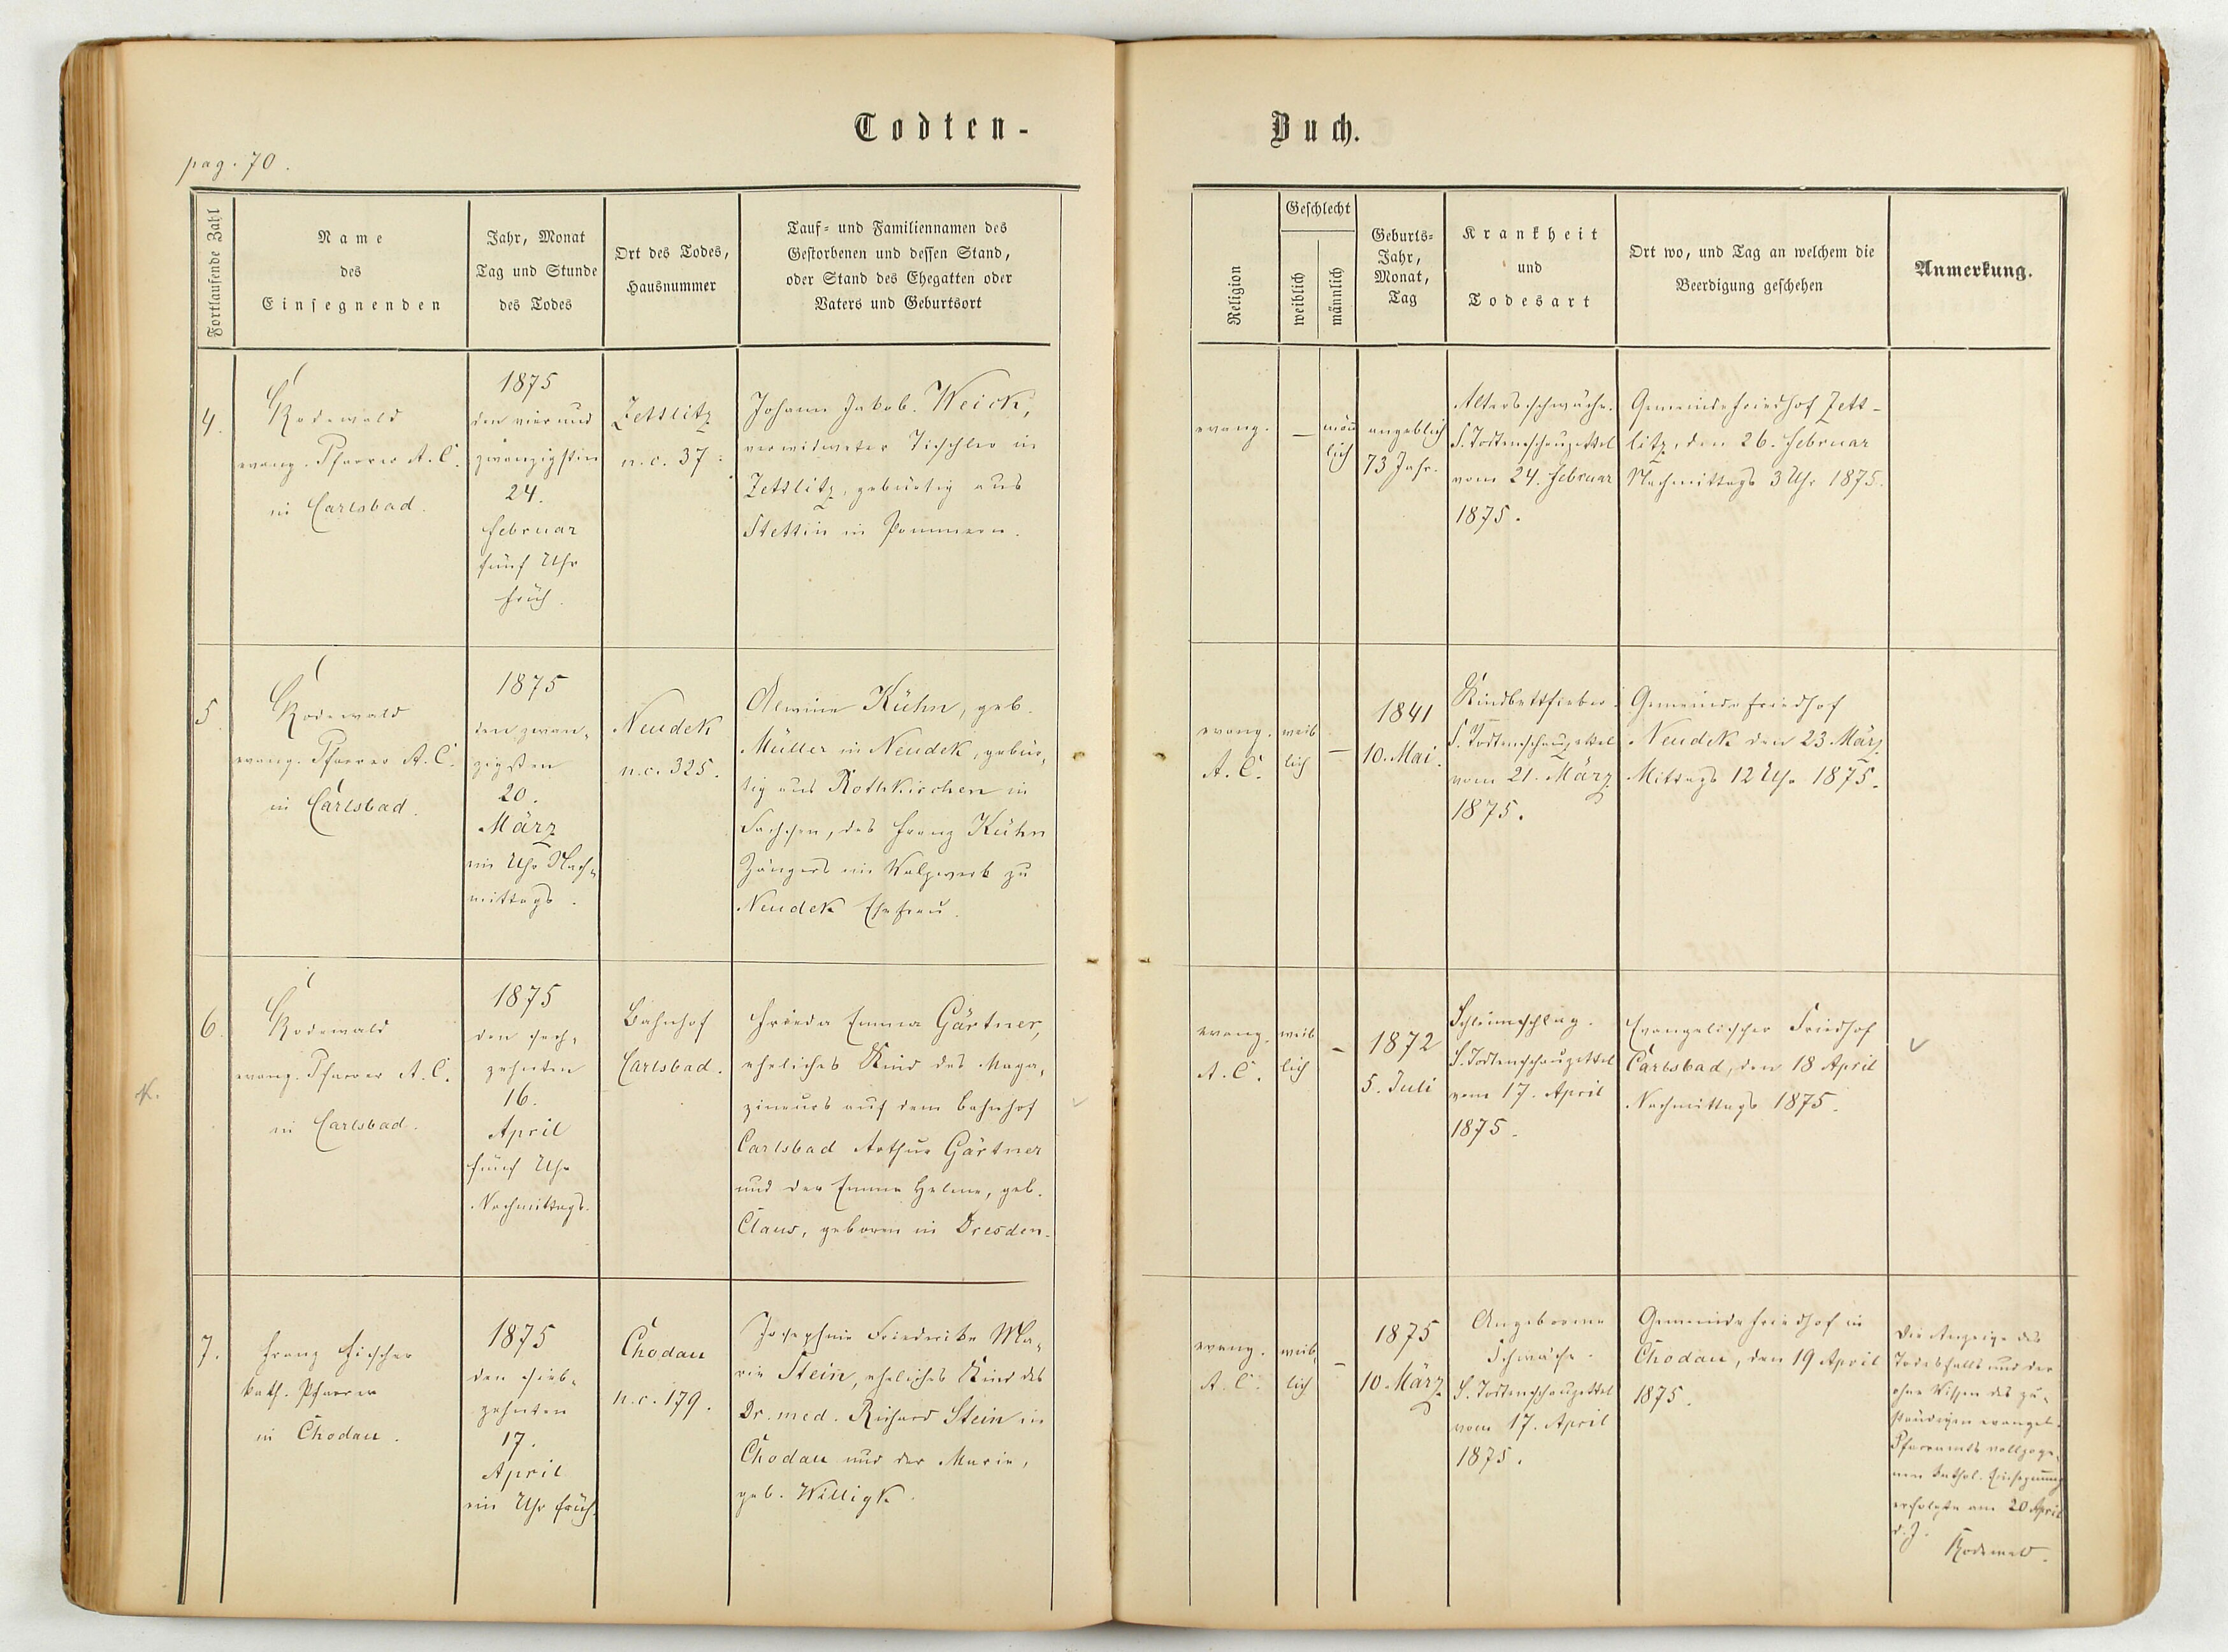 Todten-
Buch.
pag. 70.
Fortlaufende Zahl
Name
des
Einsegnenden
Jahr, Monat
Tag und Stunde
des Todes
Ort des Todes,
Hausnummer
Tauf- und Familiennamen des
Gestorbenen und dessen Stand,
oder Stand des Ehegatten oder
Vaters und Geburtsort
Religion
Geschlecht
weiblich
männlich
Geburts-
Jahr,
Monat,
Tag
Krankheit
und
Todesart
Ort wo, und Tag an welchem die
Beerdigung geschehen
Anmerkung.
4.
Rodewald
evang. Pfarrer A. C.
in Carlsbad.
1875
den vier und
zwanzigsten
24.
Februar
fünf Uhr
früh.
Zettlitz
n.c. 37.
Johann Jakob Weick,
verwidweter Tischler in
Zettlitz, gebürtig aus
Stettin in Pommern.
evang.
—
männ
lich
angeblich
73 Jahr.
Altersschwäche.
S. Todtenschauzettel
vom 24. Februar
1875.
Gemeindefriedhof Zett-
litz, den 26. Februar
Nachmittags 3 Uhr 1875.
5.
Rodewald
evang. Pfarrer A. C.
in Carlsbad.
1875
den zwan-
zigsten
20.
März
ein Uhr Nach-
mittags.
Neudek
n.c. 325.
Alwine Kühn, geb.
Müller in Neudek, gebür-
tig aus Rothkirchen in
Sachsen, des Franz Kühn
Zängers im Walzwerk zu
Neudek Ehefrau.
evang.
A. C.
weib
lich
—
1841
10. Mai.
Kindbettfieber.
S. Todtenschauzettel
vom 21. März
1875.
Gemeindefriedhof
Neudek den 23. März
Mittags 12 Uhr 1875.
6.
Rodewald
evang. Pfarrer A. C.
in Carlsbad.
1875
den sech-
zehnten
16.
April
fünf Uhr
Nachmittags.
Bahnhof
Carlsbad.
Frieda Emma Gärtner,
eheliches Kind des Maga-
zineurs auf dem Bahnhof
Carlsbad Arthur Gärtner
und der Emma Helene, geb.
Claus, geboren in Dresden.
evang.
A. C.
weib
lich
-
1872
5. Juli
Schleimschlag.
S. Todtenschauzettel
vom 17. April
1875.
Evangelischer Friedhof
Carlsbad, den 18 April
Nachmittags 1875.
7.
Franz Fischer
kath. Pfarrer
in Chodau.
1875
den sieb-
zehnten
17.
April
ein Uhr früh.
Chodau
n.c. 179.
Josephine Friederike Ma-
rie Stein, eheliches Kind des
Dr. med. Richard Stein in
Chodau und der Marie,
geb. Willigk.
evang.
A. C.
weib-
lich
-
1875
10. März
Angeborene
Schwäche.
S. Todtenschauzettel
vom 17. April
1875.
Gemeindefriedhof in
Chodau, den 19 April
1875.
Die Anzeige des
Todesfalls und der
ohne Wissen des zu-
ständigen evangel.
Pfarramts vollzoge-
nen kathol. Einsegnung
erfolgte am 20 April
d. J.
Rodewald.